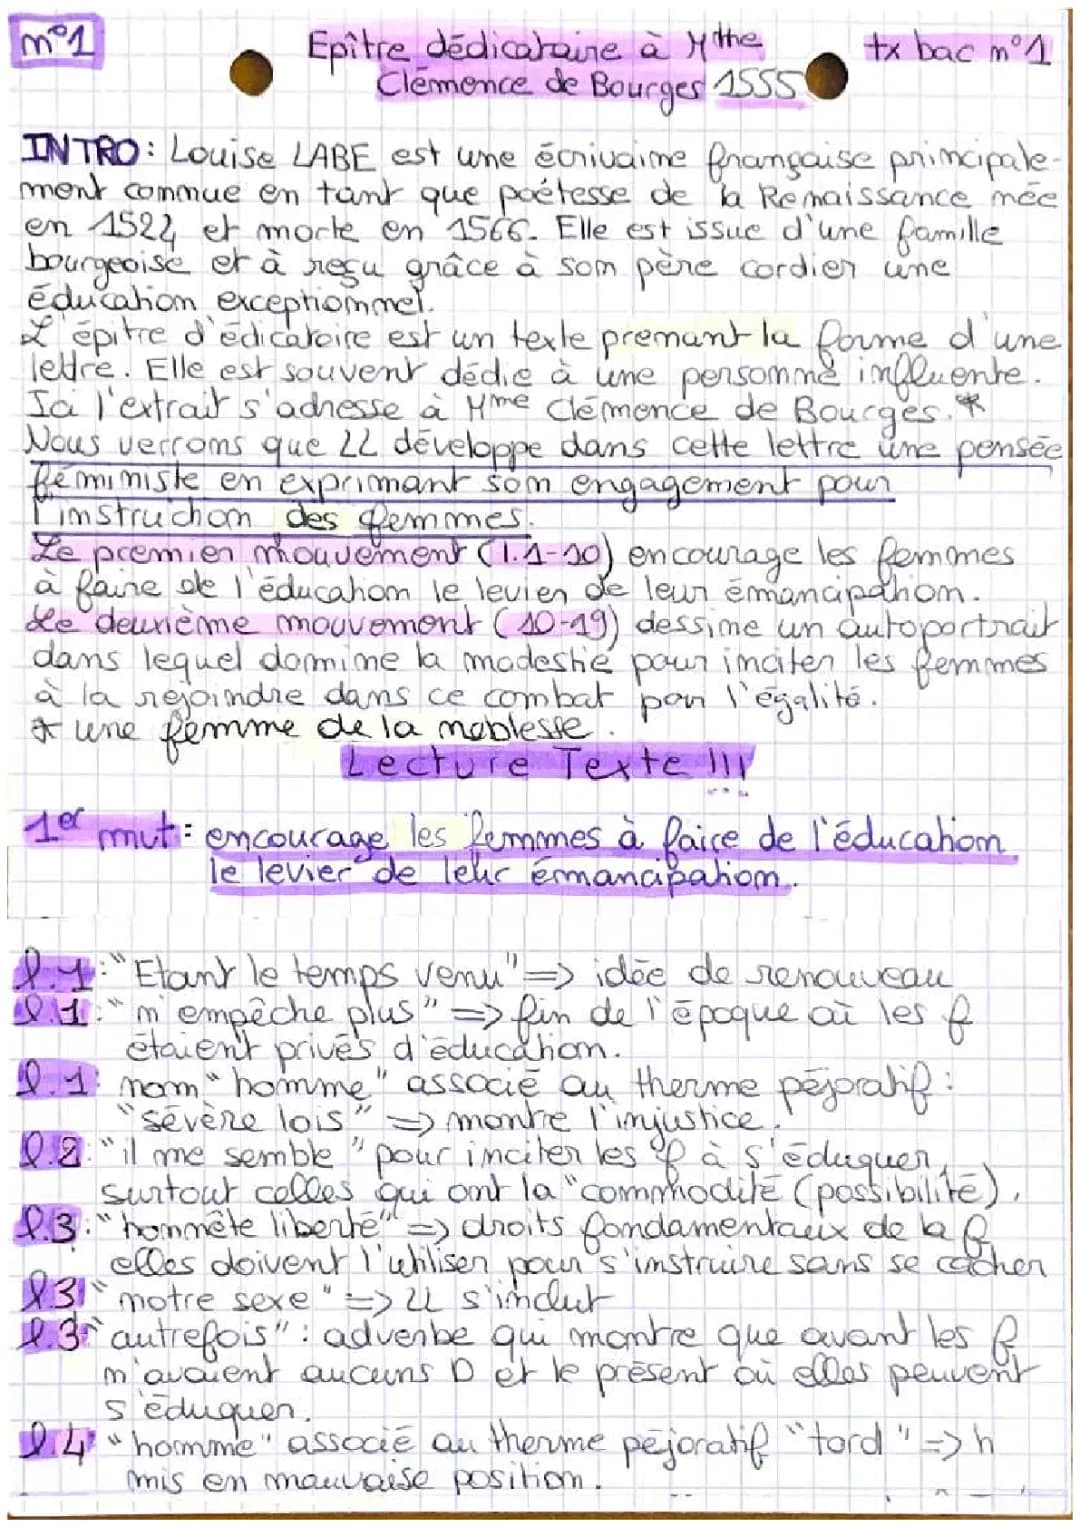 n°1
Epître dédicataire à Mthe tx bac n°1
Clémence de Bourges 1555
INTRO: Louise LABE est une écrivaine française principale-
ment connue en tant que poétesse de la Renaissance née
en 1524 et morte en 1566. Elle est issue d'une famille
bourgeoise et à reçu grâce à son père cordier une
éducation exceptionnel.
L'épitre d'édicatoire est un texte prenant la forme d'une
lettre. Elle est souvent dédié à une personne influente.
Ici l'extrait s'adresse à Mme Clémence de Bourges.*
Nous verrons que LL développe dans cette lettre une pensée
féministe en exprimant son engagement pour
l'instruction des femmes.
Le premier mouvement (l.1-10) encourage les femmes
à faire de l'éducation le levier de leur émancipation.
Le deuxième mouvement (10-19) dessine un autoportrait
dans lequel domine la modestie pour inciter les femmes
à la rejoindre dans ce combat pour l'égalité.
* une femme de la noblesse.
Lecture Texte !!!
1er mvt: encourage les femmes à faire de l'éducation
le levier de leur émancipation.
l.1: "Etant le temps venu" => idée de renouveau
l.1: "n'empêche plus" => fin de l'époque où les f
étaient privés d'éducation.
l.1: nom "homme" associé au therme péjoratif:
"sévère lois" => montre l'injustice.
l.2: "il me semble" pour inciter les f à s'éduquer,
surtout celles qui ont la "commodité (possibilité).
l.3: "honnête liberté" => droits fondamentaux de la f
elles doivent l'utiliser pour s'instruire sans se cacher
l3 "notre sexe" => LL s'inclut
l.3 "autrefois": adverbe qui montre que avant les f
n'avaient aucuns D et le présent où elles peuvent
s'éduquer.
l.4 "homme" associé au therme péjoratif "tord" => h
mis en mauvaise position.